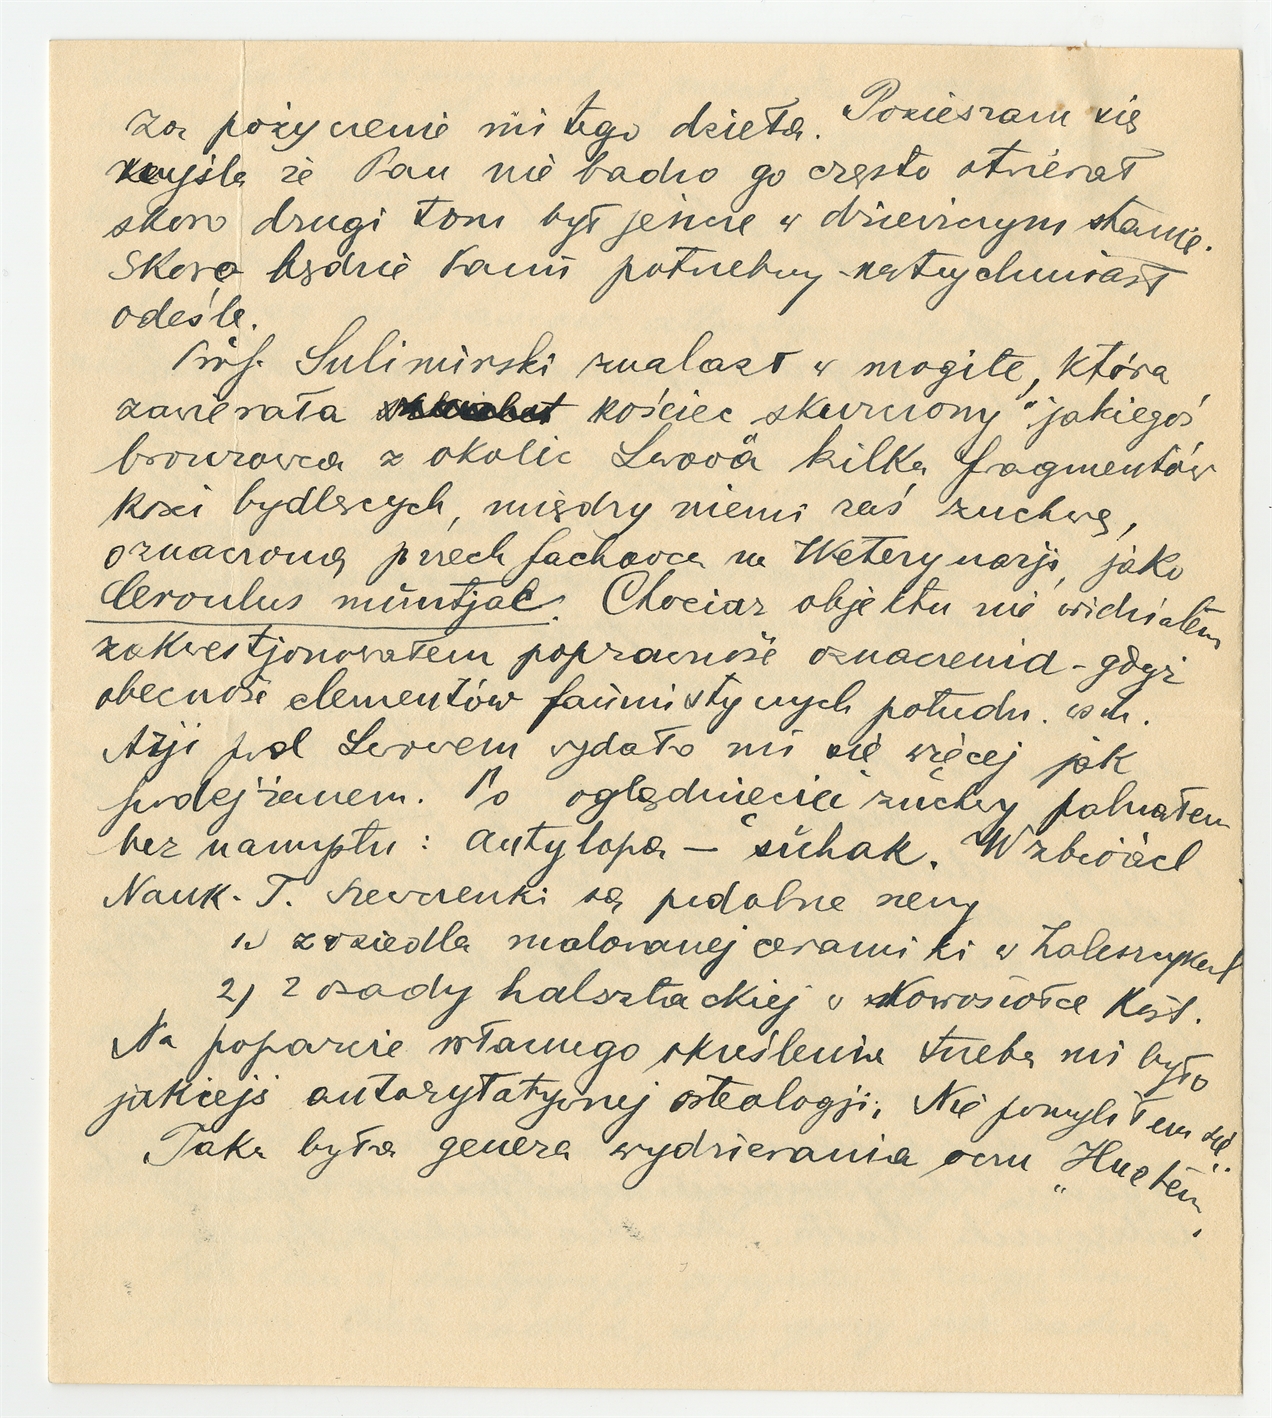 za pożyczenie mi tego dzieła. Pocieszam się
myślą że Pan nie badzo go często otwierał
skoro drugi tom był jeszcze w dziewiczym stanie.
Skoro będzie Panu potrzebny natychmiast
odeślę.
Prof. Sulimirski znalazł w mogile, która
zawierała kościec skurczony "jakiegoś
bronzowca z okolic Lwowa kilka fragmentów
kości bydlęcych, między niemi zaś żuchwę,
oznaczoną przech fachowca na Weterynarji, jako
Cervulus muntjac. Chociaz objektu nie widziałem
zakwestjonowałem poprawność oznaczenia - gdyż
obecność elementów faunistycznych połudn. wsch.
Azji pod Lwowem wydało mi się więcej jak
podejżanem. Po oglądnięciu żuchwy palnąłem
bez namysłu: antylopa — suhak. W zbiorach
Nauk. T. Szewczenki są podobne rzeczy
1.) z osiedla malowanej ceramiki w Zaleszczykach
2) z osady halsztackiej w Nowosiółce Kost.
Na poparcie własnego określenia trzeba mi było
jakiejś autorytatywnej osteologji. Nie pomyliłem się.
Taka była geneza wydzierania oczu „Huetem,